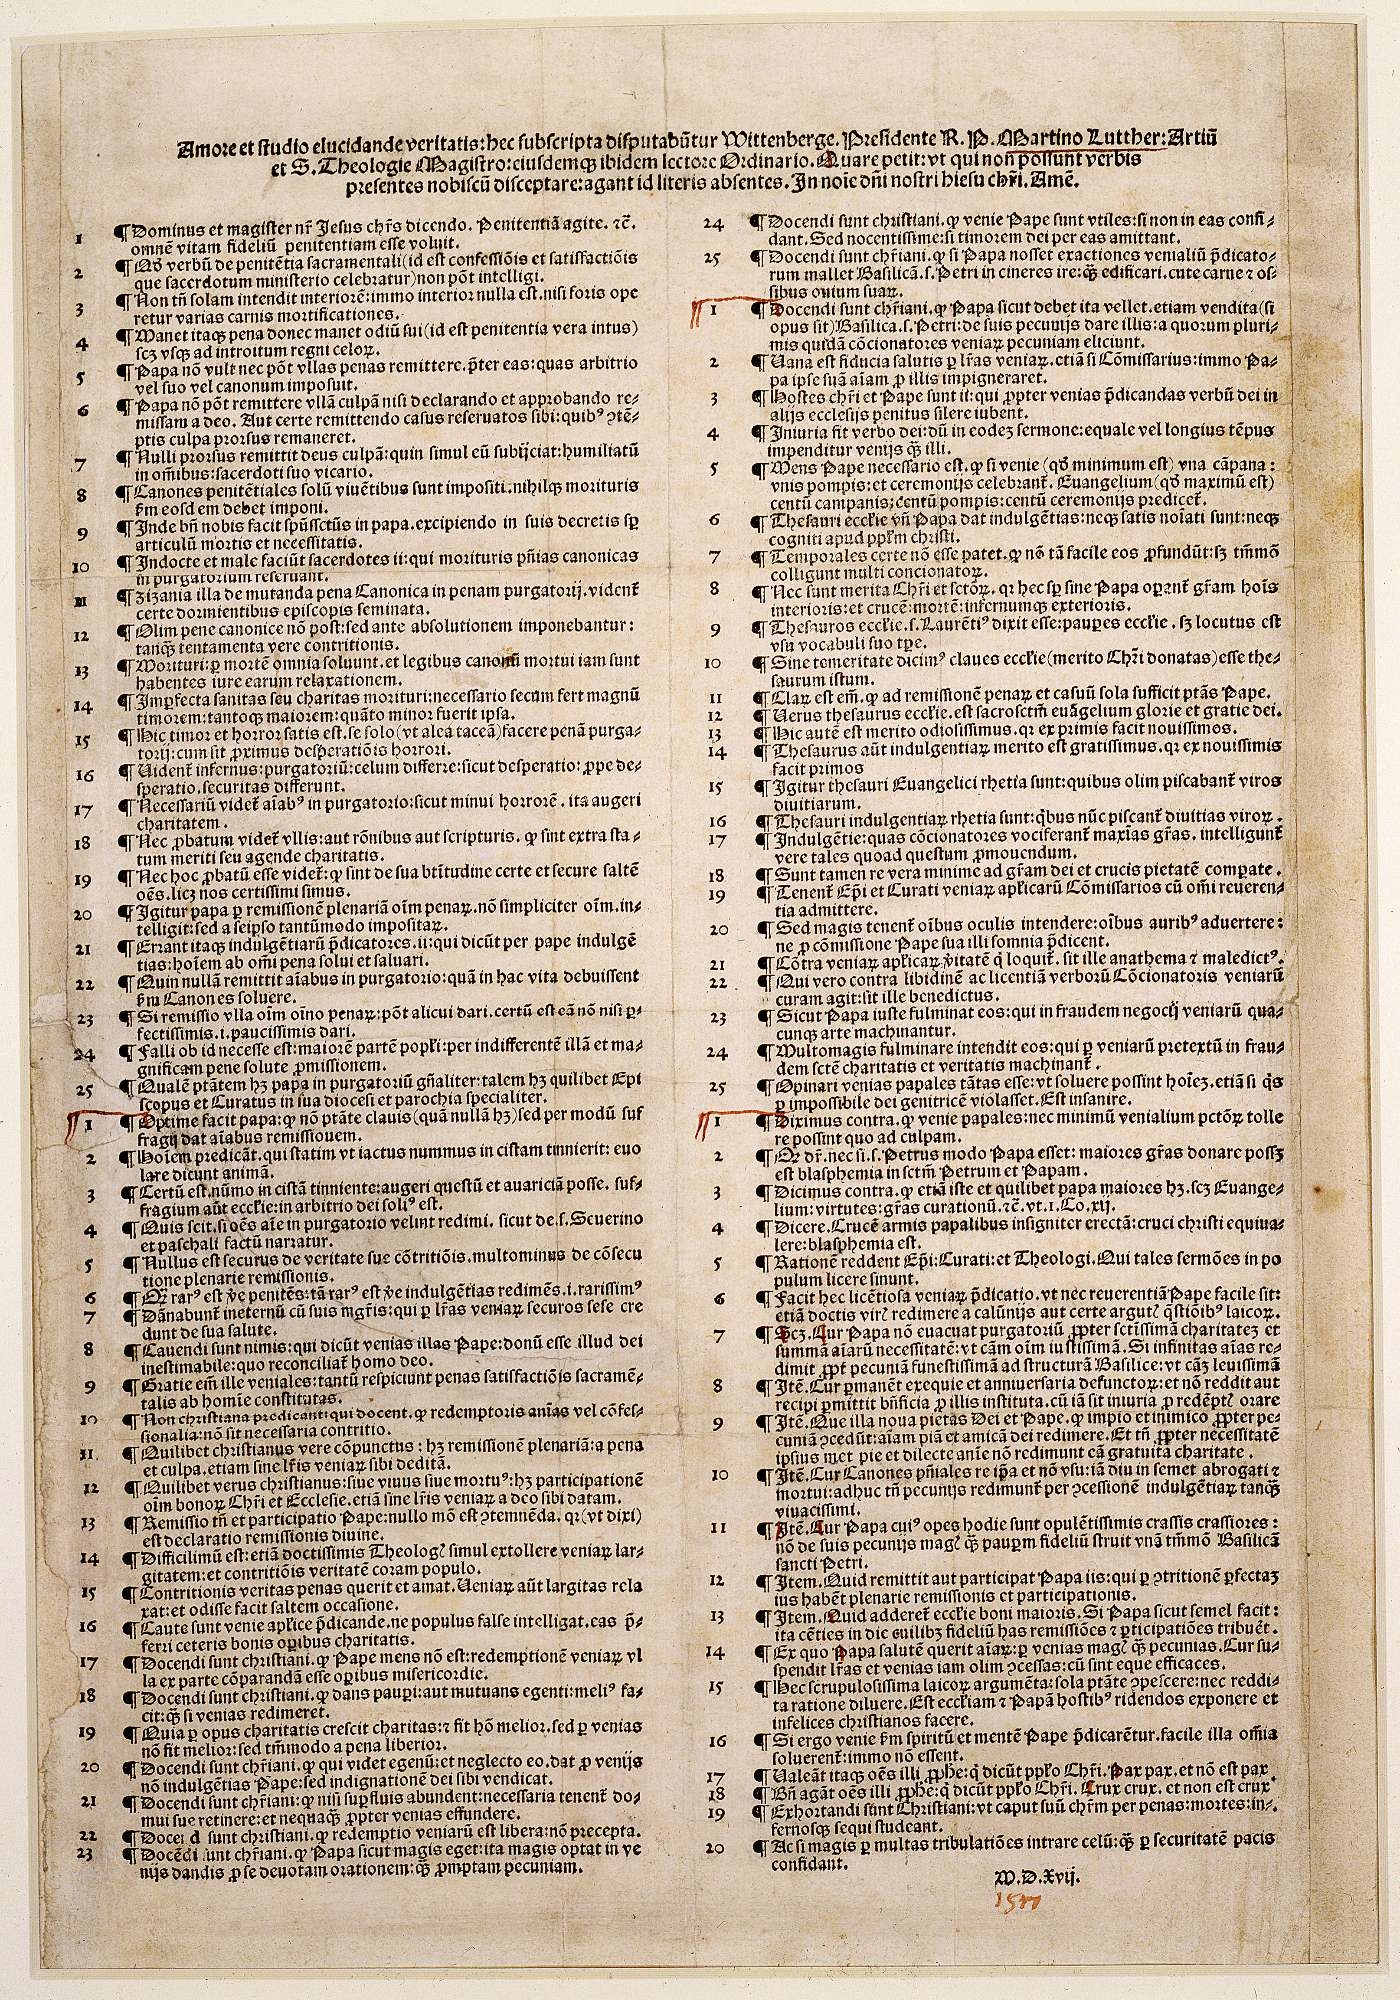 Amore et studio elucidande veritatis: hec subscripta disputabūtur Wittenberge. Presidente R. P. Martino Lutther: Artiū
et S. Theologie Magistro: eiusdemqꝫ ibidem lectore Ordinario. Quare petit: vt qui non possunt verbis
presentes nobiscū disceptare: agant id literis absentes. In noīe dn̄i nostri hiesu chr̄i. Amē.
1 ¶ Dominus et magister nr̄ Jesus chr̄s dicendo. Penitentiā agite. ⁊c̄.
omnē vitam fideliū penitentiam esse voluit.
2 ¶ Qd̄ verbū de penitētia sacramentali (id est confessiōis et satisfactiōis
que sacerdotum ministerio celebratur) non pōt intelligi.
3 ¶ Non tn̄ solam intendit interiorē: immo interior nulla est. nisi foris ope
retur varias carnis mortificationes.
4 ¶ Manet itaqꝫ pena donec manet odiū sui (id est penitentia vera intus)
scꝫ vsqꝫ ad introitum regni celoꝝ.
5 ¶ Papa nō vult nec pōt vllas penas remittere. p̄ter eas: quas arbitrio
vel suo vel canonum imposuit.
6 ¶ Papa nō pōt remittere vllā culpā nisi declarando et approbando re⸗
missam a deo. Aut certe remittendo casus reseruatos sibi: quibꝰ ꝯtē⸗
ptis culpa prorsus remaneret.
7 ¶ Nulli prorsus remittit deus culpā: quin simul eū subijciat: humiliatū
in om̄ibus: sacerdoti suo vicario.
8 ¶ Canones penitētiales solū viuētibus sunt impositi. nihilqꝫ morituris
ẜm eosdem debet imponi.
9 ¶ Inde bn̄ nobis facit spūssctūs in papa. excipiendo in suis decretis sꝑ
articulū mortis et necessitatis.
10 ¶ Indocte et male faciūt sacerdotes ii: qui morituris pn̄ias canonicas
in purgatorium reseruant.
11 ¶ Zizania illa de mutanda pena Canonica in penam purgatorij. vident᷑
certe dormientibus episcopis seminata.
12 ¶ Olim pene canonice nō post: sed ante absolutionem imponebantur:
tanqꝫ tentamenta vere contritionis.
13 ¶ Morituri: ꝑ mortē omnia soluunt. et legibus canonū mortui iam sunt
habentes iure earum relaxationem.
14 ¶ Imperfecta sanitas seu charitas morituri: necessario secum fert magnū
timorem: tantoqꝫ maiorem: quāto minor fuerit ipsa.
15 ¶ Hic timor et horror satis est. se solo (vt alea taceā) facere penā purga⸗
torij: cum sit ꝓximus desperatiōis horrori.
16 ¶ Vident᷑ infernus: purgatoriū: celum differre: sicut desperatio: ꝓpe de⸗
speratio. securitas differunt.
17 ¶ Necessariū videt᷑ aīabꝰ in purgatorio: sicut minui horrorē. ita augeri
charitatem.
18 ¶ Nec ꝓbatum videt᷑ vllis: aut rōnibus aut scripturis. ꝙ sint extra sta⸗
tum meriti seu agende charitatis.
19 ¶ Nec hoc ꝓbatū esse videt᷑: ꝙ sint de sua btītudine certe et secure saltē
oēs. licꝫ nos certissimi simus.
20 ¶ Igitur papa ꝑ remissionē plenariā oīm penaꝝ. nō simpliciter oīm. in⸗
telligit: sed a seipso tantūmodo impositaꝝ.
21 ¶ Errant itaqꝫ indulgētiarū p̄dicatores. ii: qui dicūt per pape indulgē
tias: hoīem ab om̄i pena solui et saluari.
22 ¶ Quin nullā remittit aīabus in purgatorio: quā in hac vita debuissent
ẜm Canones soluere.
23 ¶ Si remissio vlla oīm oīno penaꝝ: pōt alicui dari. certū est eā nō nisi ꝑ⸗
fectissimis. i. paucissimis dari.
24 ¶ Falli ob id necesse est: maiorē partē popłi: per indifferentē illā et ma⸗
gnificam pene solute ꝓmissionem.
25 ¶ Qualē ptātem hꝫ papa in purgatoriū gn̄aliter: talem hꝫ quilibet Epi
scopus et Curatus in sua diocesi et parochia specialiter.
1 ¶ Optime facit papa: ꝙ nō ptāte clauis (quā nullā hꝫ) sed per modū suf
fragij dat aīabus remissionem.
2 ¶ Hoīem predicāt. qui statim vt iactus nummus in cistam tinnierit: euo
lare dicunt animā.
3 ¶ Certū est. nūmo in cistā tinniente: augeri questū et auariciā posse. suf⸗
fragium aūt ecckie: in arbitrio dei soliꝰ est.
4 ¶ Quis scit. si oēs aīe in purgatorio velint redimi. sicut de. s. Seuerino
et paschali factū narratur.
5 ¶ Nullus est securus de veritate sue cōtritiōis. multominus de cōsecu
tione plenarie remissionis.
6 ¶ Qꝫ rarꝰ est ꝟe penitēs: tā rarꝰ est ꝟe indulgētias redimēs. i. rarissimꝰ
7 ¶ Dānabunt᷑ ineternū cū suis mgr̄is: qui ꝑ lr̄as veniaꝝ securos sese cre
dunt de sua salute.
8 ¶ Cauendi sunt nimis: qui dicūt venias illas Pape: donū esse illud dei
inestimabile: quo reconciliat᷑ homo deo.
9 ¶ Gratie em̄ ille veniales: tantū respiciunt penas satisfactiōis sacramē⸗
talis ab homīe constitutas.
10 ¶ Non christiana predicant: qui docent. ꝙ redemptoris anīas vel cōfes⸗
sionalia: nō sit necessaria contritio.
11 ¶ Quilibet christianus vere cōpunctus: hꝫ remissionē plenariā: a pena
et culpa. etiam sine lr̄is veniaꝝ sibi deditā.
12 ¶ Quilibet verus christianus: siue viuus siue mortuꝰ: hꝫ participationē
oīm bonoꝝ Chr̄i et Ecclesie. etiā sine lr̄is veniaꝝ a deo sibi datam.
13 ¶ Remissio tn̄ et participatio Pape: nullo mō est ꝯtemnēda. qꝛ (vt dixi)
est declaratio remissionis diuine.
14 ¶ Difficilimū est: etiā doctissimis Theologꝭ simul extollere veniaꝝ lar⸗
gitatem: et contritiōis veritatē coram populo.
15 ¶ Contritionis veritas penas querit et amat. Veniaꝝ aūt largitas rela
xat: et odisse facit saltem occasione.
16 ¶ Caute sunt venie apłice p̄dicande. ne populus false intelligat. eas p̄⸗
ferri ceteris bonis oꝑibus charitatis.
17 ¶ Docendi sunt christiani. ꝙ Pape mens nō est: redemptionē veniaꝝ vl
la ex parte cōparandā esse oꝑibus misericordie.
18 ¶ Docendi sunt christiani. ꝙ dans pauꝑi: aut mutuans egenti: meliꝰ fa⸗
cit: qꝫ si venias redimeret.
19 ¶ Quia ꝑ opus charitatis crescit charitas: ⁊ fit hō melior. sed ꝑ venias
nō fit melior: sed tm̄modo a pena liberior.
20 ¶ Docendi sunt chr̄iani. ꝙ qui videt egenū: et neglecto eo. dat ꝓ venijs
nō indulgētias Pape: sed indignationē dei sibi vendicat.
21 ¶ Docendi sunt chr̄iani: ꝙ nisi suꝑfluis abundent: necessaria tenent᷑ do⸗
mui sue retinere: et nequaqꝫ ꝓpter venias effundere.
22 ¶ Docei d sunt christiani. ꝙ redemptio veniarū est libera: nō precepta.
23 ¶ Docēdi sunt chr̄iani. ꝙ Papa sicut magis eget: ita magis optat in ve
nijs dandis ꝓ se deuotam orationem: qꝫ ꝓmptam pecuniam.
24 ¶ Docendi sunt christiani. ꝙ venie Pape sunt vtiles: si non in eas confi⸗
dant. Sed nocentissime: si timorem dei per eas amittant.
25 ¶ Docendi sunt chr̄iani. ꝙ si Papa nosset exactiones venialiū p̄dicato⸗
rum mallet Basilicā. s. Petri in cineres ire: qꝫ edificari. cute carne ⁊ os⸗
sibus ouium suaꝝ.
1 ¶ Docendi sunt chr̄iani. ꝙ Papa sicut debet ita vellet. etiam vendita (si
opus sit) Basilica. s. Petri: de suis pecunijs dare illis: a quorum pluri⸗
mis quidā cōcionatores veniaꝝ pecuniam eliciunt.
2 ¶ Vana est fiducia salutis ꝑ lr̄as veniaꝝ. etiā si Cōmissarius: immo Pa⸗
pa ipse suā aīam ꝓ illis impigneraret.
3 ¶ Hostes chr̄i et Pape sunt ii: qui ꝓpter venias p̄dicandas verbū dei in
alijs ecclesijs penitus silere iubent.
4 ¶ Iniuria fit verbo dei: dū in eodeꝫ sermone: equale vel longius tēpus
impenditur venijs qꝫ illi.
5 ¶ Mens Pape necessario est. ꝙ si venie (qd̄ minimum est) vna cāpana:
vnis pompis: et ceremonijs celebrant᷑. Euangelium (qd̄ maximū est)
centū campanis: centū pompis: centū ceremonijs predicet᷑.
6 ¶ Thesauri ecckie vn̄ Papa dat indulgētias: neqꝫ satis noīati sunt: neqꝫ
cogniti apud ppłm christi.
7 ¶ Temporales certe nō esse patet. ꝙ nō tā facile eos ꝓfundūt: sꝫ tm̄mō
colligunt multi concionatoꝝ.
8 ¶ Nec sunt merita Chr̄i et sctōꝝ. qꝛ hec sꝑ sine Papa oꝑant᷑ gr̄am hoīs
interioris: et crucē: mortē: infernumqꝫ exterioris.
9 ¶ Thesauros ecckie. s. Laurētiꝰ dixit esse: pauꝑes ecckie. sꝫ locutus est
vsu vocabuli suo tꝑe.
10 ¶ Sine temeritate dicimꝰ claues ecckie (merito Chr̄i donatas) esse the⸗
saurum istum.
11 ¶ Claꝝ est em̄. ꝙ ad remissionē penaꝝ et casuū sola sufficit ptās Pape.
12 ¶ Verus thesaurus ecckie. est sacrosctm̄ euāgelium glorie et gratie dei.
13 ¶ Hic autē est merito odiosissimus. qꝛ ex primis facit nouissimos.
14 ¶ Thesaurus aūt indulgentiaꝝ merito est gratissimus. qꝛ ex nouissimis
facit primos
15 ¶ Igitur thesauri Euangelici rhetia sunt: quibus olim piscabant᷑ viros
diuitiarum.
16 ¶ Thesauri indulgentiaꝝ rhetia sunt: q̄bus nūc piscant᷑ diuitias viroꝝ.
17 ¶ Indulgētie: quas cōcionatores vociferant᷑ maxīas gr̄as. intelligunt᷑
vere tales quoad questum ꝓmouendum.
18 ¶ Sunt tamen re vera minime ad gr̄am dei et crucis pietatē compate.
19 ¶ Tenent᷑ Epī et Curati veniaꝝ apłicarū Cōmissarios cū om̄i reueren⸗
tia admittere.
20 ¶ Sed magis tenent᷑ oībus oculis intendere: oībus auribꝰ aduertere:
ne ꝓ cōmissione Pape sua illi somnia p̄dicent.
21 ¶ Cōtra veniaꝝ apłicaꝝ ꝟitatē q̄ loquit᷑. sit ille anathema ⁊ maledictꝰ.
22 ¶ Qui vero contra libidinē ac licentiā verborū Cōcionatoris veniarū
curam agit: sit ille benedictus.
23 ¶ Sicut Papa iuste fulminat eos: qui in fraudem negocij veniarū qua⸗
cunqꝫ arte machinantur.
24 ¶ Multomagis fulminare intendit eos: qui ꝑ veniarū pretextū in frau⸗
dem sctē charitatis et veritatis machinant᷑.
25 ¶ Opinari venias papales tātas esse: vt soluere possint hoīeꝫ. etiā si q̄s
ꝑ impossibile dei genitricē violasset. Est insanire.
1 ¶ Diximus contra. ꝙ venie papales: nec minimū venialium pctōꝝ tolle
re possint quo ad culpam.
2 ¶ Qꝛ dr̄. nec si. s. Petrus modo Papa esset: maiores gr̄as donare possꝫ
est blasphemia in sctm̄ Petrum et Papam.
3 ¶ Dicimus contra. ꝙ etiā iste et quilibet papa maiores hꝫ. scꝫ Euange⸗
lium: virtutes: gr̄as curationū. ⁊c̄. vt. 1. Co. xij.
4 ¶ Dicere. Crucē armis papalibus insigniter erectā: cruci christi equiua⸗
lere: blasphemia est.
5 ¶ Rationē reddent Epī: Curati: et Theologi. Qui tales sermōes in po
pulum licere sinunt.
6 ¶ Facit hec licētiosa veniaꝝ p̄dicatio. vt nec reuerentiā Pape facile sit:
etiā doctis virꝭ redimere a calūnijs aut certe argutꝭ q̄stiōibꝰ laicoꝝ.
7 ¶ Scꝫ. Cur Papa nō euacuat purgatoriū ꝓpter sctīssimā charitateꝫ et
summā aīarū necessitatē: vt cām oīm iustissimā. Si infinitas aīas re⸗
dimit ꝓpt᷑ pecuniā funestissimā ad structurā Basilice: vt cāꝫ leuissimā
8 ¶ Itē. Cur ꝑmanēt exequie et anniuersaria defunctoꝝ: et nō reddit aut
recipi ꝑmittit bn̄ficia ꝓ illis instituta. cū iā sit iniuria ꝓ redēptꝭ orare
9 ¶ Itē. Que illa noua pietas Dei et Pape. ꝙ impio et inimico ꝓpter pe⸗
cuniā ꝯcedūt: aīam piā et amicā dei redimere. Et tn̄ ꝓpter necessitatē
ipsius met pie et dilecte anīe nō redimunt eā gratuita charitate.
10 ¶ Itē. Cur Canones pn̄iales re ip̄a et nō vsu: iā diu in semet abrogati ⁊
mortui: adhuc tn̄ pecunijs redimunt᷑ per ꝯcessionē indulgētiaꝝ tanqꝫ
viuacissimi.
11 ¶ Itē. Cur Papa cuiꝰ opes hodie sunt opulētissimis crassis crassiores:
nō de suis pecunijs magꝭ qꝫ pauꝑm fideliū struit vnā tm̄mō Basilicā
sancti Petri.
12 ¶ Item. Quid remittit aut participat Papa iis: qui ꝑ ꝯtritionē ꝑfectaꝫ
ius habēt plenarie remissionis et participationis.
13 ¶ Item. Quid adderet᷑ ecckie boni maioris. Si Papa sicut semel facit:
ita cēties in die cuilibꝫ fideliū has remissiōes ⁊ ꝑticipatiōes tribuēt.
14 ¶ Ex quo Papa salutē querit aīaꝝ: ꝑ venias magꝭ qꝫ pecunias. Cur su⸗
spendit lr̄as et venias iam olim ꝯcessas: cū sint eque efficaces.
15 ¶ Hec scrupulosissima laicoꝝ argumēta: sola ptāte ꝯpescere: nec reddi⸗
ta ratione diluere. Est ecckiam ⁊ Papā hostibꝰ ridendos exponere et
infelices christianos facere.
16 ¶ Si ergo venie ẜm spiritū et mentē Pape p̄dicarētur. facile illa om̄ia
soluerent᷑: immo nō essent.
17 ¶ Valeāt itaqꝫ oēs illi ꝓphe: q̄ dicūt ppło Chr̄i. Pax pax. et nō est pax.
18 ¶ Bn̄ agāt oēs illi ꝓphe: q̄ dicūt ppło Chr̄i. Crux crux. et non est crux
19 ¶ Exhortandi sūnt Christiani: vt caput suū chr̄m per penas: mortes: in⸗
fernosqꝫ sequi studeant.
20 ¶ Ac si magis ꝑ multas tribulatiōes intrare celū: qꝫ ꝑ securitatē pacis
confidant.
M.D.Xvij.
1517